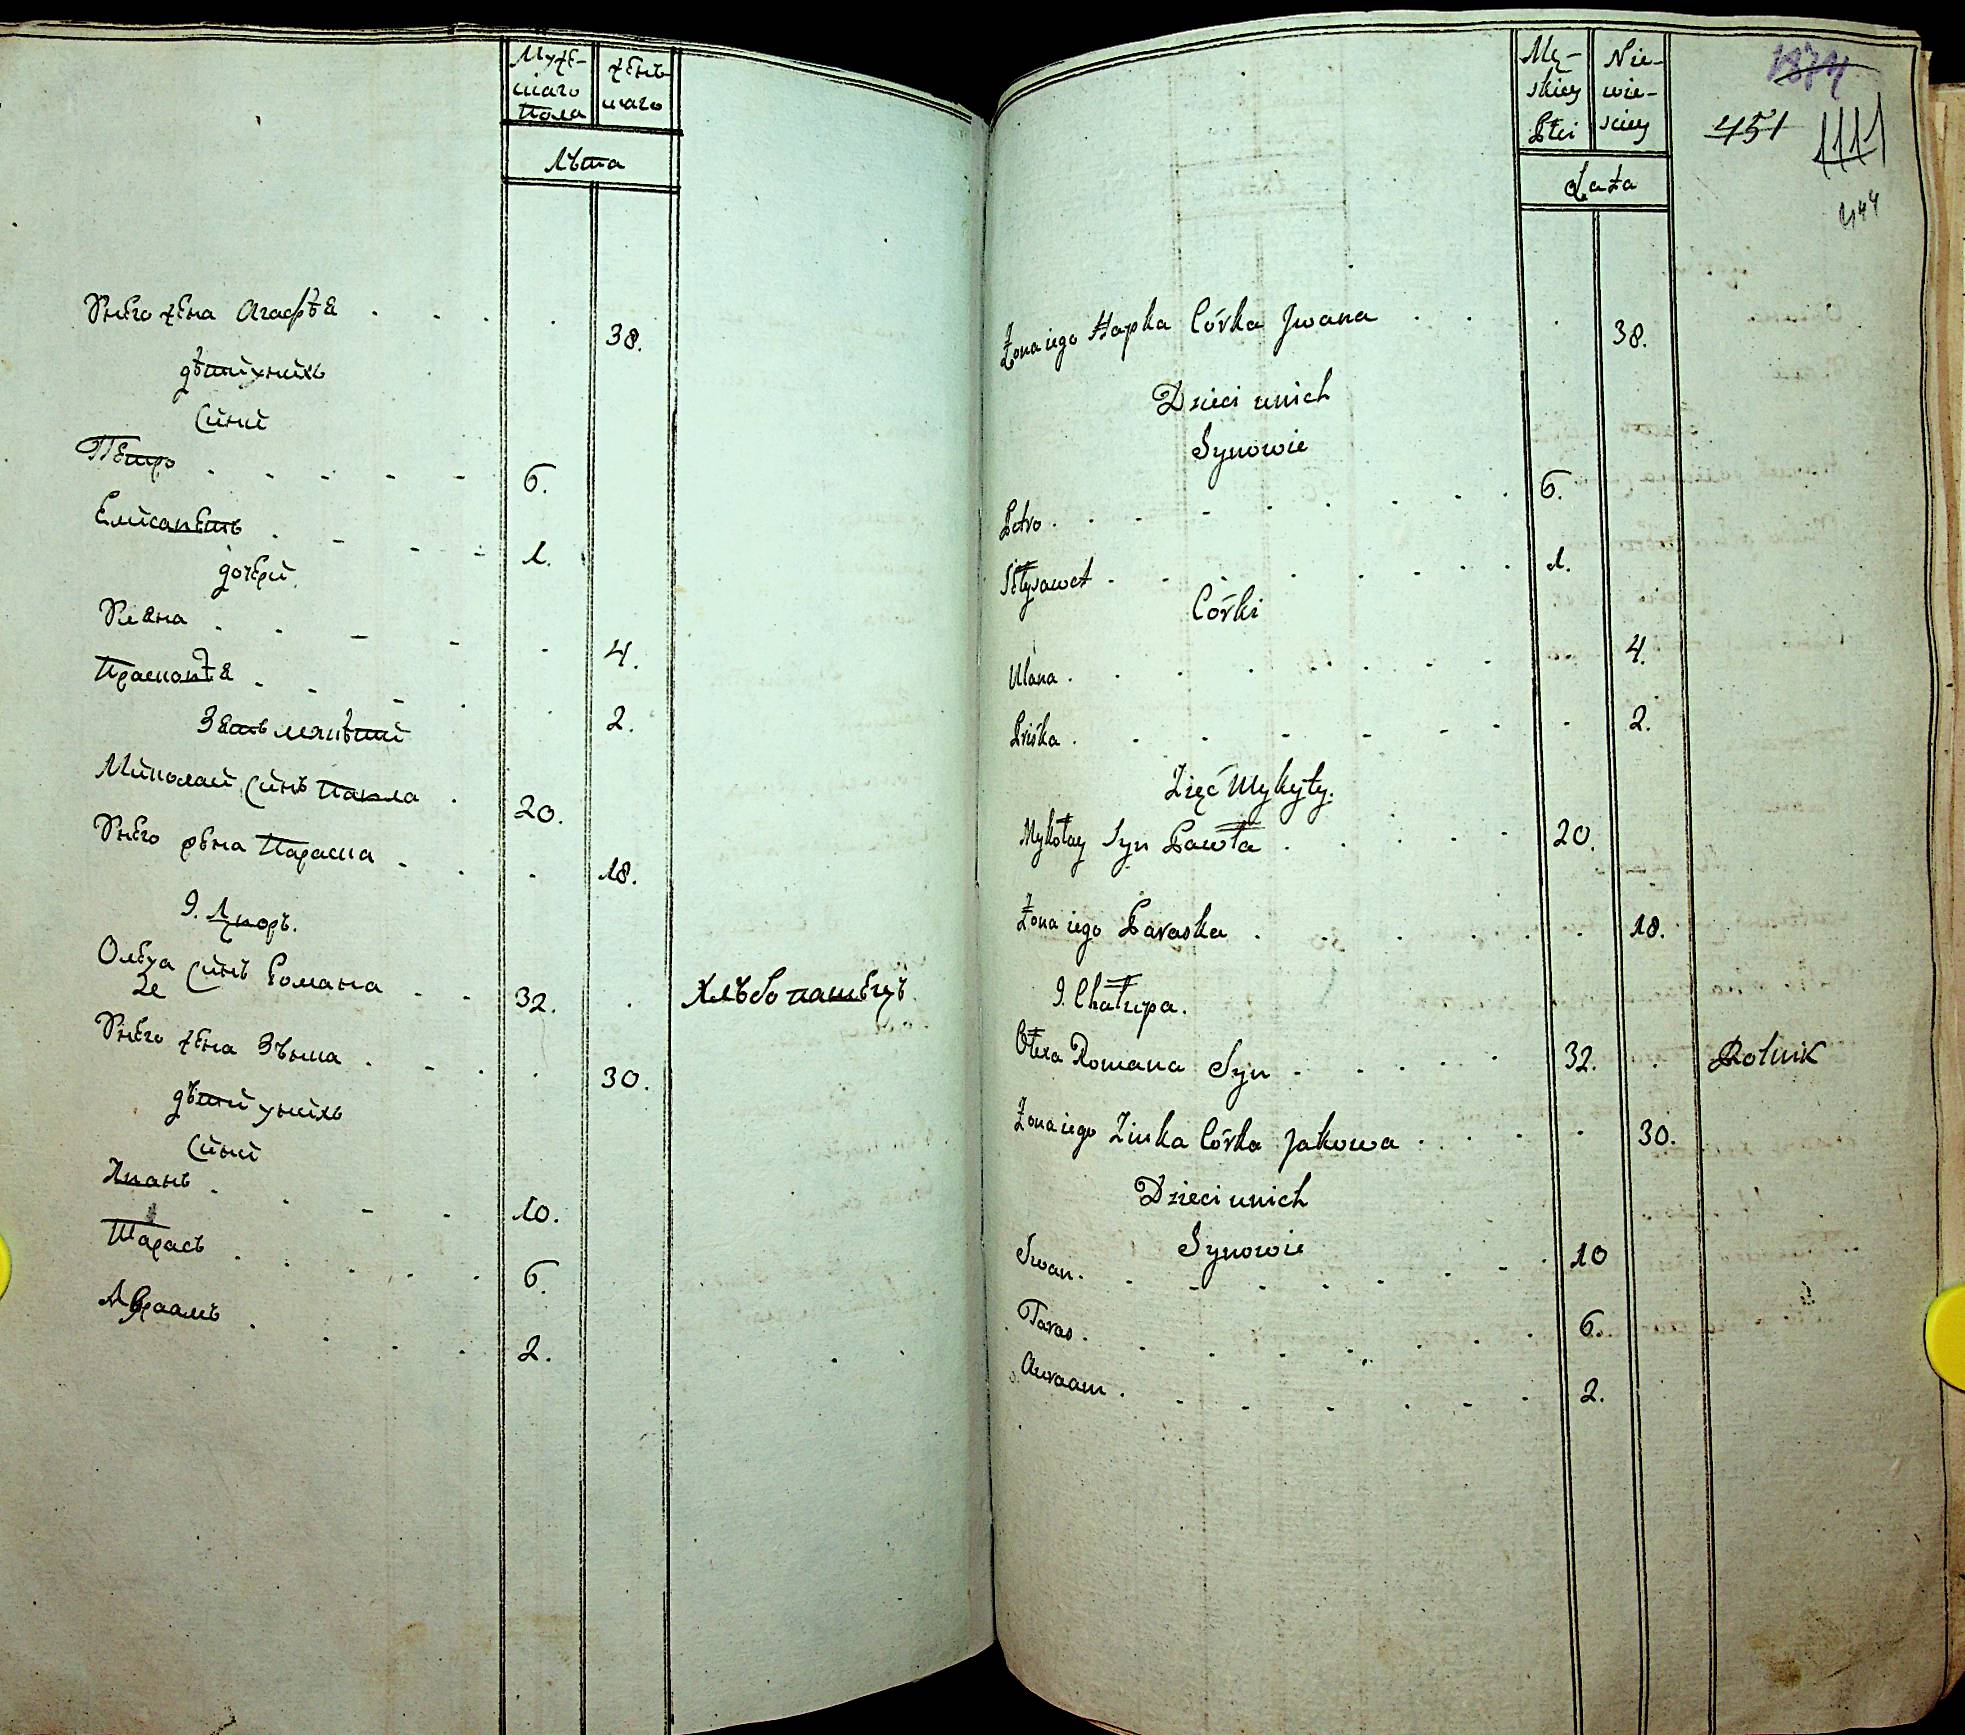 Муже-
скаго
пола
женъ
скаго
Лѣта
Унего жена Агафѣя 38.
дѣти ихъ
Сини
Петро 6.
Елисаветъ 1.
дочери
Уляна 4.
Прасковѣя 2.
Зять микити
Миколай Синъ Павла 20.
Унего жена Параска 18.
9. Двор.
Олекса Синъ Романа 32. Хлѣбопашецъ
2е
Унего жена Зѣнка 30.
дѣти унихъ
Сини
Иванъ 10.
Тарасъ 6.
Авраамъ 2.
Mę-
skiey
Płci
Nie-
wie-
sciey
Lata
451
1111
444
Żona iego Hapka Córka Jwana 38.
Dzieci unich
Synowie
Petro 6.
Iłysawet 1.
Córki
Ulana 4.
Priśka 2.
Zięć Mykyty.
Mykołay Syn Pawła 20.
Żona iego Paraska 18.
9. Chałupa.
Ołexa Romana Syn 32. Rolnik
Żona iego Zinka Córka Jakowa 30.
Dzieci unich
Synowie
Iwan. 10
Taras. 6.
Awraam. 2.